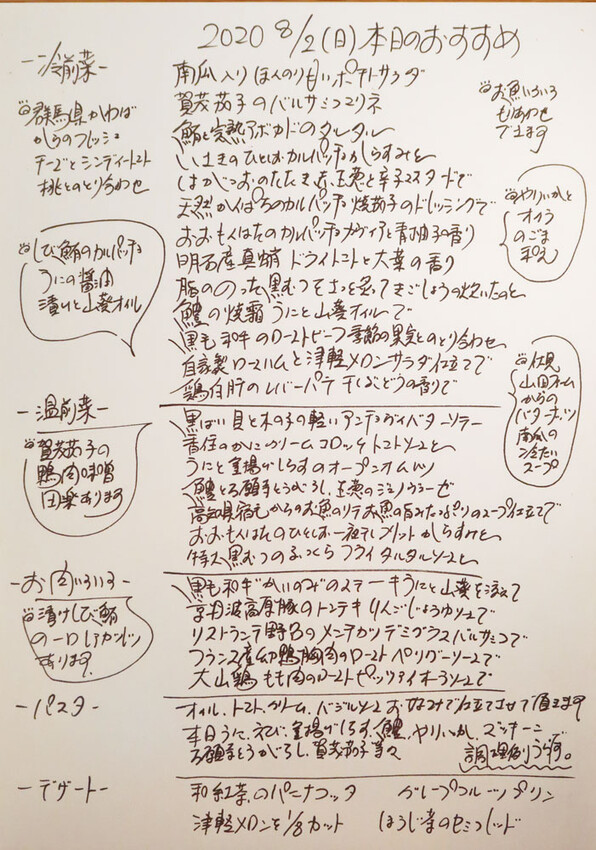 2020 8/2(日)本日のおすすめ
-冷前菜-
南瓜入りほんのり甘いポテトサラダ
賀茂茄子のバルサミコマリネ
鮪と完熟アボカドのタルタル
しまあじのひとしおカルパッチョからすみと
はがつおのたたき 玉葱と辛子マスタードで
天然かんぱちのカルパッチョ 焼茄子のドレッシングで
おおもんはたのカルパッチョ キャヴィアと青柚子の香り
明石産真蛸 ドライトマトと大葉の香り
脂ののった黒むつをさっと炙って きごしょうの炊いたのと
鱧の焼霜 うにと山葵オイルで
黒毛和牛のローストビーフ 季節の果実とのとり合わせ
自家製ロースハムと津軽メロン サラダ仕立てで
鶏白肝のレバーパテ 干しぶどうの香りで
群馬県かわば
からのフレッシュ
チーズとシンディートマト
桃とのとり合わせ
しび鮪のカルパッチョ
うにの醤油
漬けと山葵オイル
お魚いろいろ
もりあわせ
できます
やりいかと
オクラ
のごま
和え
伏見
山田ファーム
からの
バターナッツ
南瓜の
冷たい
スープ
-温前菜-
黒ばい貝と木の子の軽いアンチョヴィバターソテー
香住のかにクリームコロッケ トマトソースと
うにと釜揚げしらすのオープンオムレツ
鱧と万願寺とうがらし、玉葱のジェノヴェーゼ
高知県宿毛からのお魚のソテー お魚の旨みたっぷりのスープ仕立てで
おおもんはたのひとしお一夜干しソテー からすみと
特大黒むつのふっくらフライ タルタルソースと
賀茂茄子の
鴨肉味噌
田楽あります
-お肉いろいろ-
黒毛和牛かいのみのステーキ うにと山葵を添えて
京丹波高原豚のトンテキ りんごじょうゆソースで
リストランテ野呂のメンチカツ デミグラスバルサミコで
フランス産幼鴨胸肉のロースト ペリグーソースで
大山鶏もも肉のロースト ピッツァイオーラソースで
漬けしび鮪
の一口レアカツレツ
あります。
-パスタ-
オイル、トマト、クリーム、バジルソース お好みで仕立てさせて頂きます
本日うに、えび、釜揚げしらす、鱧、やりいか、ズッキーニ、
万願寺とうがらし、賀茂茄子等々
調理例うらです。
-デザート-
和紅茶のパンナコッタ
グレープフルーツプリン
津軽メロンを1/8カット
ほうじ茶のセミフレッド